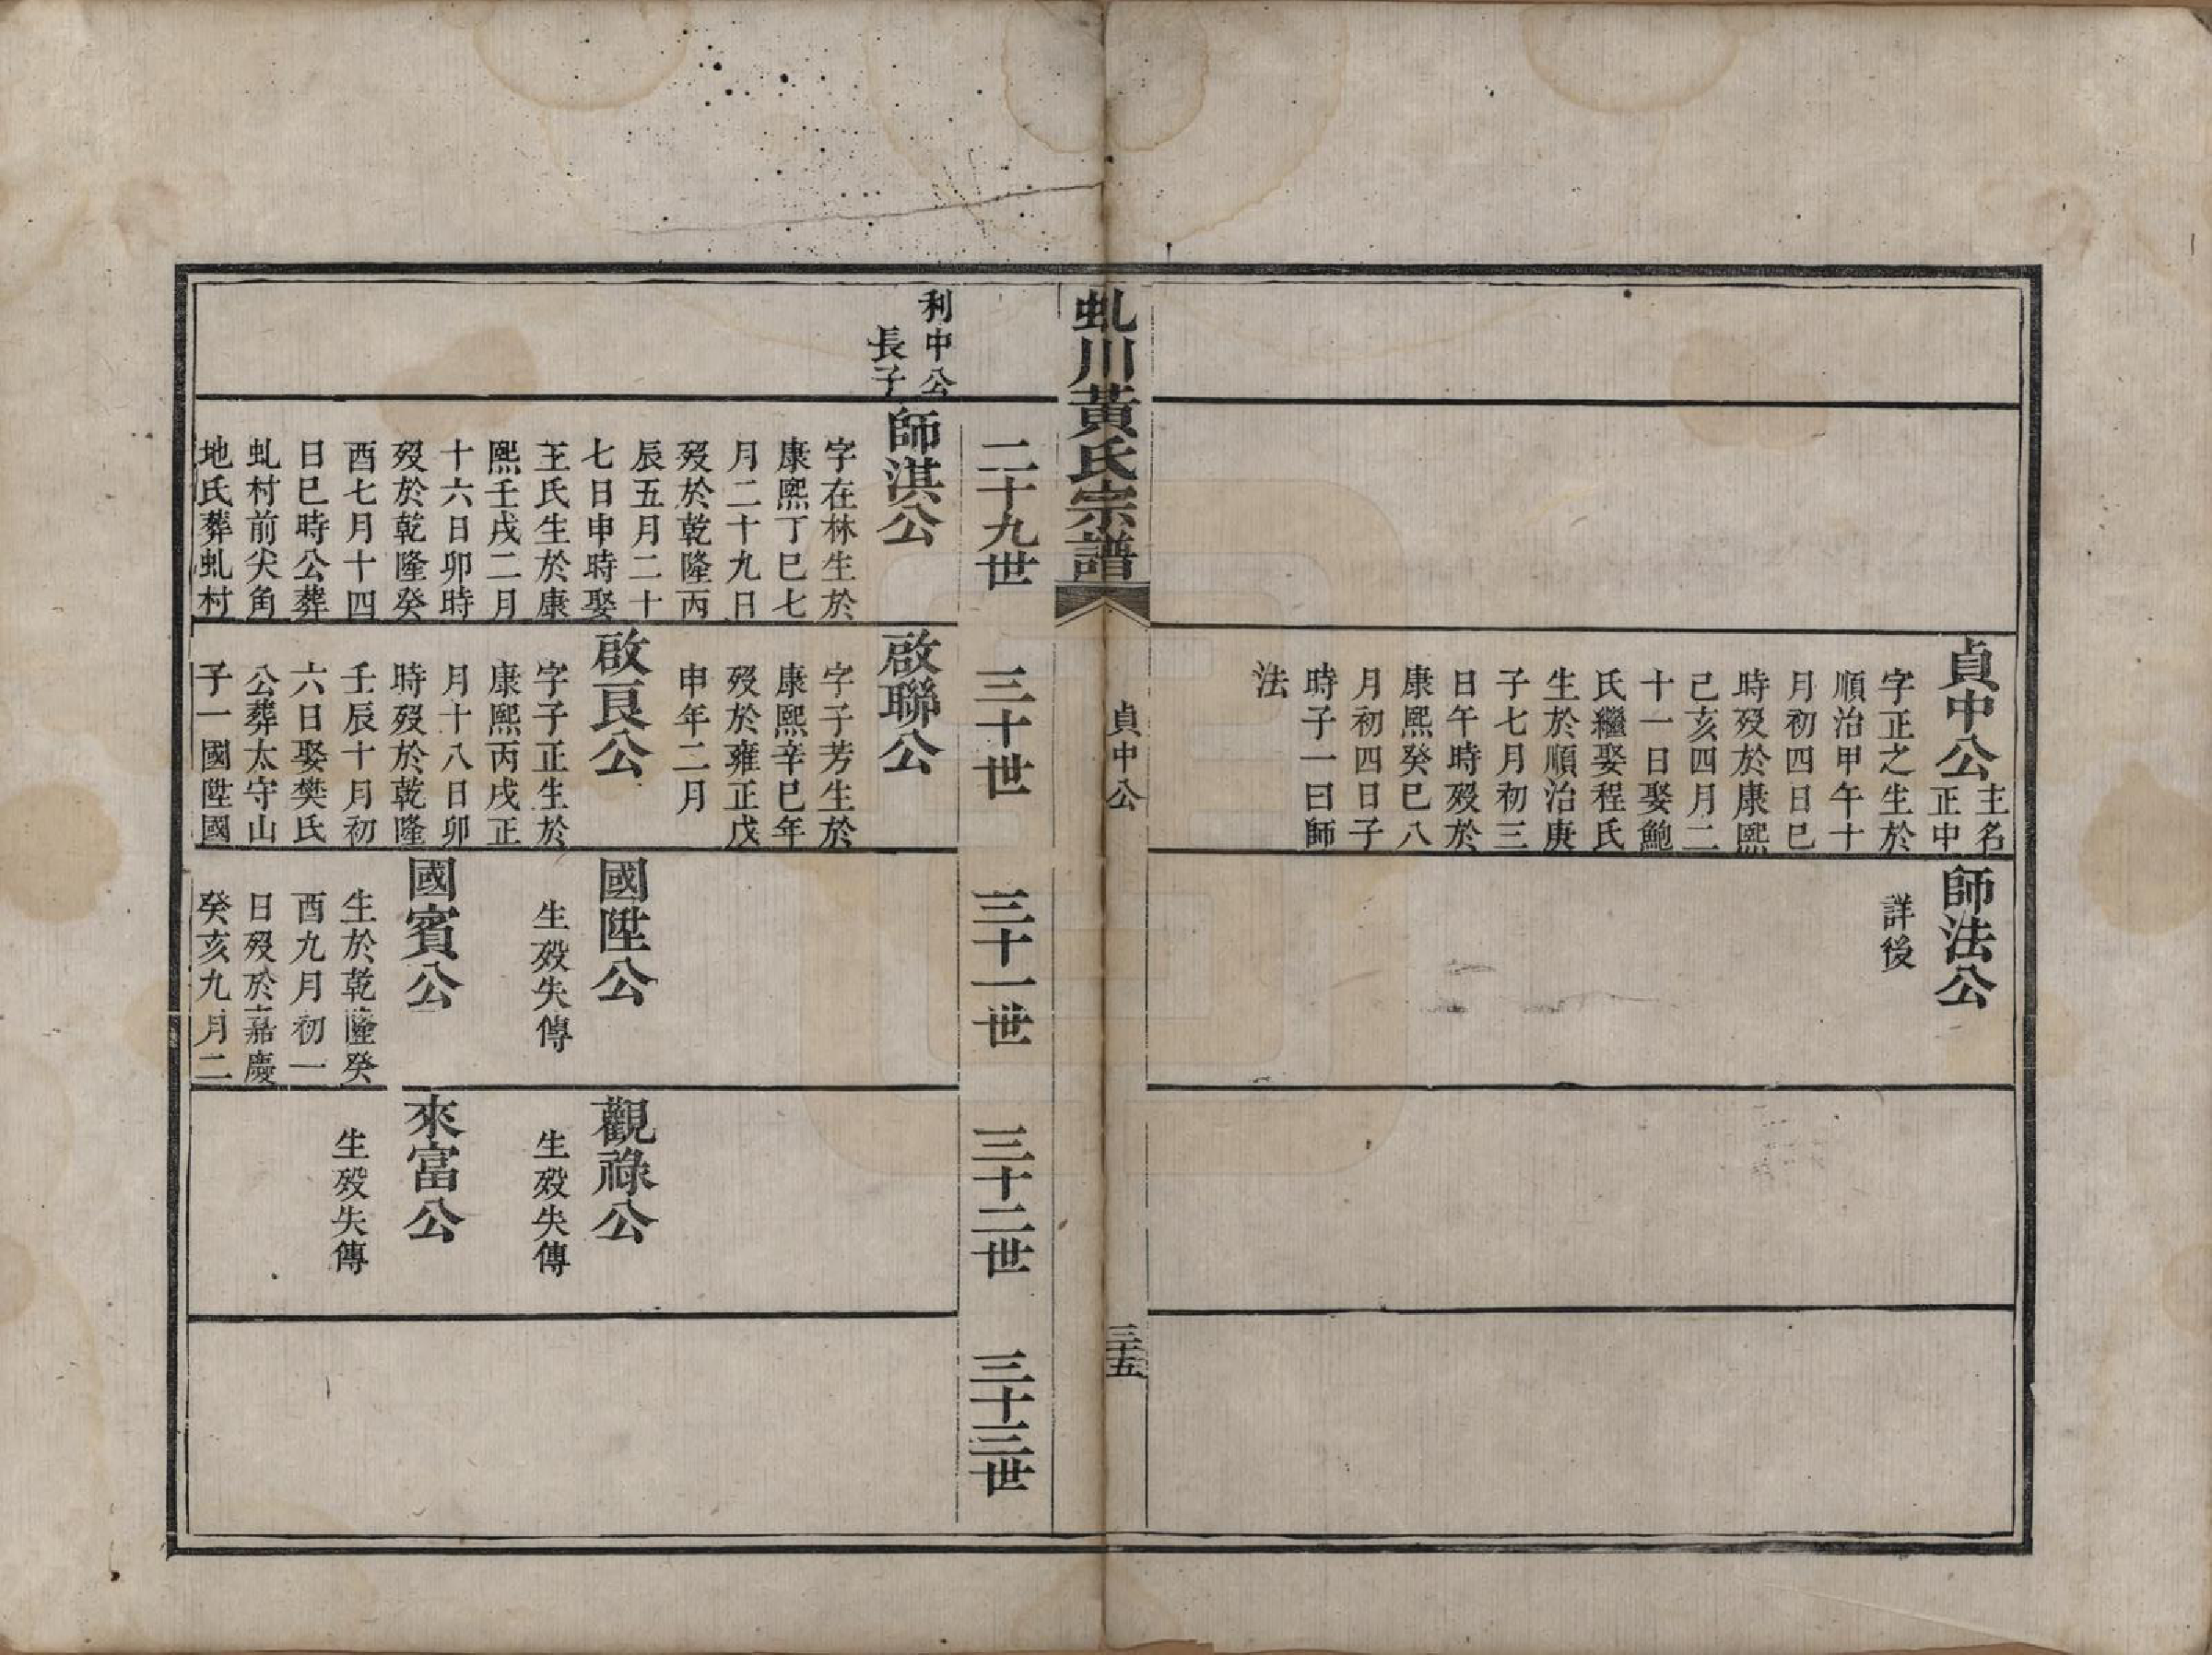 貞中公
主名
正中
字正之生於
順治甲午十
月初四日巳
時歿於康熙
己亥四月二
十一日娶鮑
氏繼娶程氏
生於順治庚
子七月初三
日午時歿於
康熙癸巳八
月初四日子
時子一曰師
法
師法公
詳後
虬川黃氏宗譜
貞中公
三十五
二十九世
三十世
三十一世
三十二世
三十三世
利中公
長子
師淇公
字在林生於
康熙丁巳七
月二十九日
歿於乾隆丙
辰五月二十
七日申時娶
王氏生於康
熙壬戌二月
十六日卯時
歿於乾隆癸
酉七月十四
日巳時公葬
虬村前尖角
地氏葬虬村
啟聯公
字子芳生於
康熙辛巳年
歿於雍正戊
申年二月
啟良公
字子正生於
康熙丙戌正
月十八日卯
時歿於乾隆
壬辰十月初
六日娶樊氏
公葬太守山
子一國陞國
國陞公
生歿失傳
國賓公
生於乾隆癸
酉九月初一
日歿於嘉慶
癸亥九月二
觀祿公
生歿失傳
來富公
生歿失傳